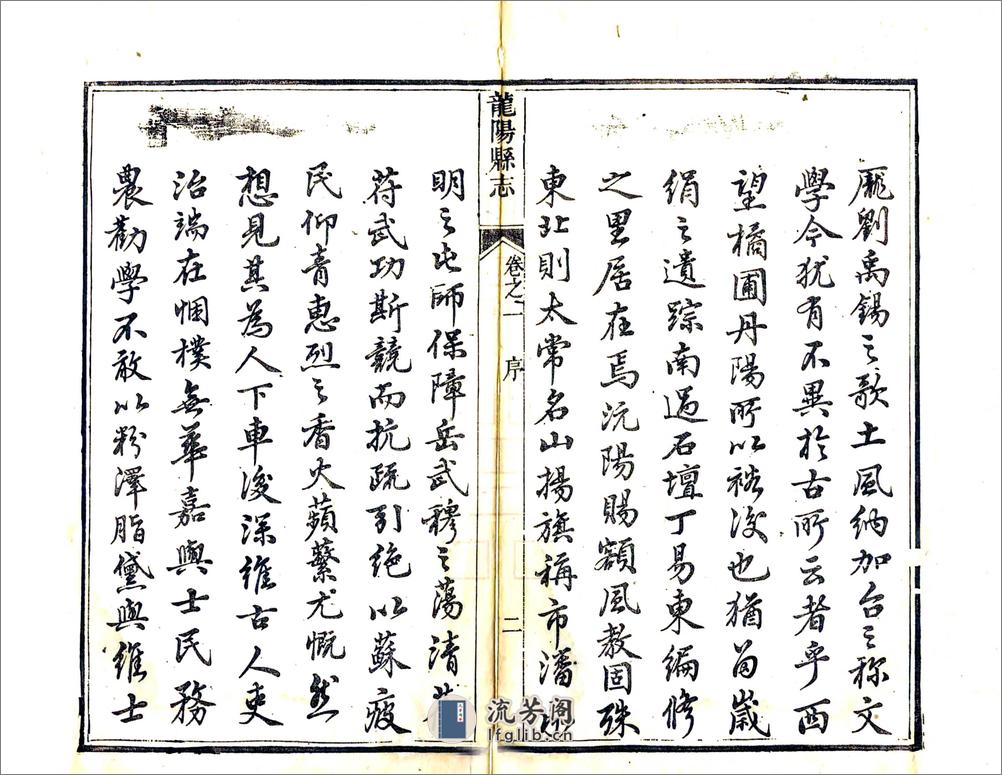 龎劉禹錫之歌土風納加台之称文
學今犹有不異於古所云者乎西
望橘圃丹陽所以裕後也猶留歲
絹之遺踪南過石壇丁易東編修
之里居在焉沅陽賜額風教固殊
東北則太常名山揚旗稱市潘
龍陽縣志
卷之二
序
二
明之屯師保障岳武穆之蕩清
苻武功斯競而抗疏引绝以蘇疲
民仰青惠烈之香火蘋蘩尤慨然
想見其為人下車後深维古人吏
治端在悃樸無華嘉與士民務
農勸學不敢以粉澤脂黛與维士
流芳阁
lfglib.cn